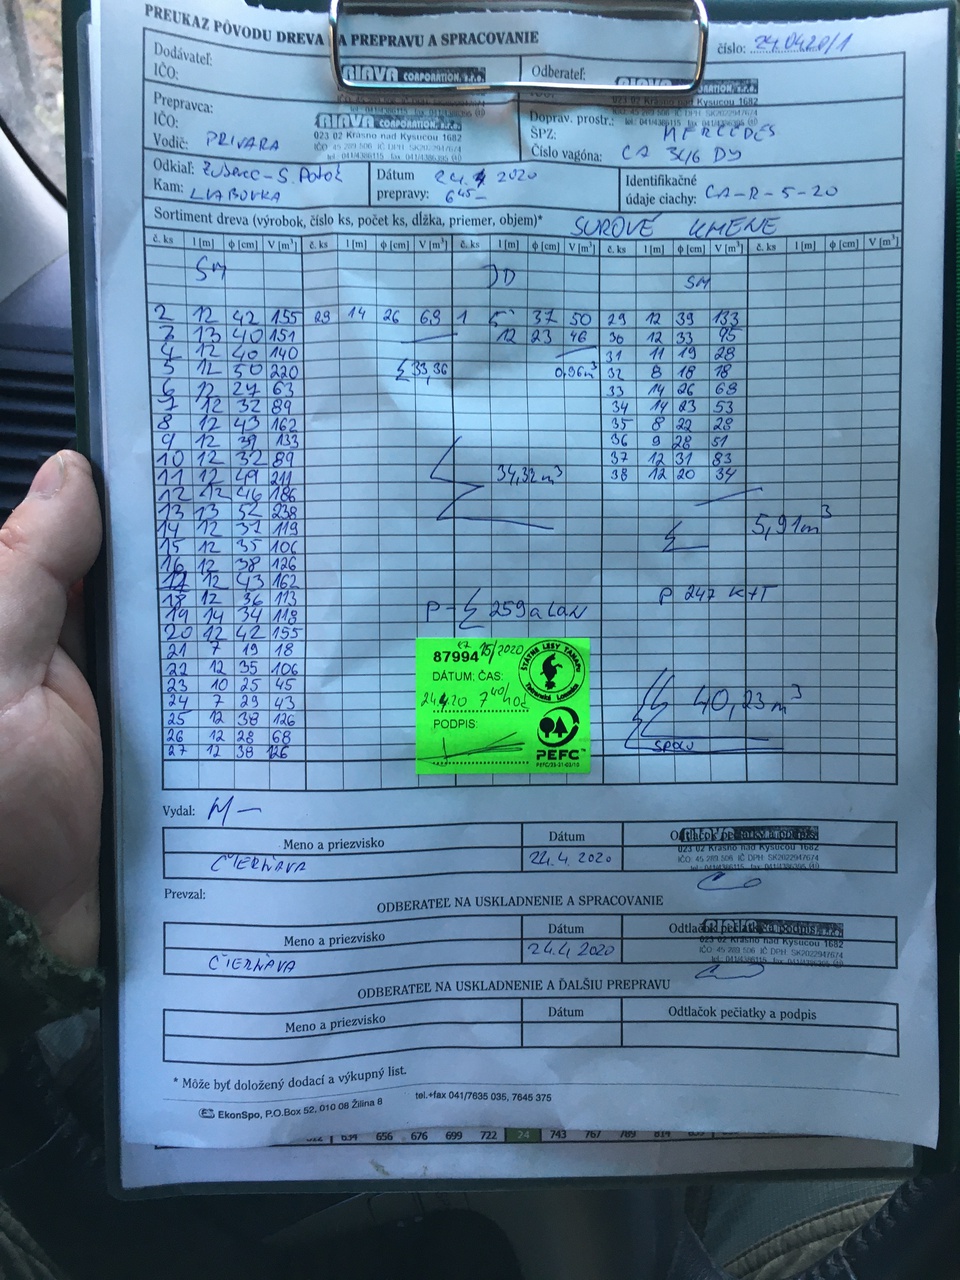 PREUKAZ PÔVODU DREVA NA PREPRAVU A SPRACOVANIE
číslo: 24.0420/1
Dodávateľ:
IČO:
RIAVA CORPORATION, s.r.o.
Odberateľ:
023 02 Krásno nad Kysucou 1682
Prepravca:
IČO:
Vodič: PRIVARA
RIAVA CORPORATION, s.r.o.
023 02 Krásno nad Kysucou 1682
IČO: 45 289 506 IČ DPH: SK2022947674
tel.: 041/4386115 fax: 041/4386395 (4)
Doprav. prostr.: MERCEDES
ŠPZ:
Číslo vagóna: CA 346 DY
Odkiaľ:
Kam:
Dátum
prepravy: 24.4 2020
6⁴⁵-
Identifikačné
údaje ciachy: CA-R-5-20
Sortiment dreva (výrobok, číslo ks, počet ks, dĺžka, priemer, objem)* SUROVÉ KMENE
č. ks l [m] ϕ [cm] V [m³] č. ks l [m] ϕ [cm] V [m³] č. ks l [m] ϕ [cm] V [m³] č. ks l [m] ϕ [cm] V [m³] č. ks l [m] ϕ [cm] V [m³]
SM JD SM
2 12 42 155 29 14 26 69 1 5 37 50 29 12 39 133
13 40 151 12 23 46 30 12 33 95
4 12 40 140 31 11 19 28
5 12 50 220 Σ 33,36 0,96m³ 32 8 18 18
6 12 27 63 33 14 26 68
7 12 32 89 34 14 23 53
8 12 43 162 35 8 22 28
9 12 39 133 36 9 28 51
10 12 32 89 37 12 31 83
11 12 49 211 Σ 34,32m³ 38 12 20 34
12 12 46 186
13 13 52 238
14 12 37 119 Σ 5,91m³
15 12 35 106
16 12 38 126
17 12 43 162
18 12 36 113 P 247 K+T
19 14 34 118 P-Σ 259a LAN
20 12 42 155
21 7 19 18
22 12 35 106
23 10 25 45
24 7 29 43
25 12 38 126
26 12 28 68
27 12 38 126
Σ 40,23m³
SPOLU
87994 15/2020
DÁTUM; ČAS:
24.4.20 7⁴⁰hod
PODPIS:
ŠTÁTNE LESY TANAPu
Tatranská Lomnica
PEFC™
PEFC/35-21-03/10
Vydal:
Meno a priezvisko Dátum Odtlačok pečiatky a podpis
ČIERŇAVA 24.4.2020
023 02 Krásno nad Kysucou 1682
IČO: 45 289 506 IČ DPH: SK2022947674
tel.: 041/4386115 fax: 041/4386395 (4)
Prevzal:
ODBERATEĽ NA USKLADNENIE A SPRACOVANIE
Meno a priezvisko Dátum Odtlačok pečiatky a podpis
ČIERŇAVA 24.4 2020
023 02 Krásno nad Kysucou 1682
IČO: 45 289 506 IČ DPH: SK2022947674
tel.: 041/4386115 fax: 041/4386395 (4)
ODBERATEĽ NA USKLADNENIE A ĎALŠIU PREPRAVU
Meno a priezvisko Dátum Odtlačok pečiatky a podpis
* Môže byť doložený dodací a výkupný list.
EkonSpo, P.O.Box 52, 010 08 Žilina 8 tel.+fax 041/7635 035, 7645 375
634 656 676 699 722 24 743 767 789 814